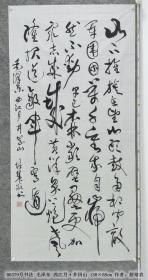 山下旌旗在望山头鼓角相闻敌
军围困万千重我自岿
然不动早已森严壁垒更加
众志成城黄洋界上炮声
隆报道敌军宵遁
毛泽东西江月井冈山
书法 毛泽东 西江月·井冈山 138×68cm 作者: